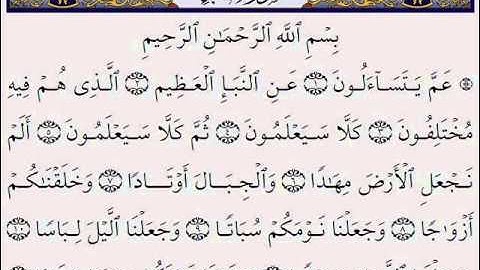 بِسْمِ ٱللَّهِ ٱلرَّحْمَـٰنِ ٱلرَّحِيمِ
عَمَّ يَتَسَآءَلُونَ ١ عَنِ ٱلنَّبَإِ ٱلْعَظِيمِ ٢ ٱلَّذِى هُمْ فِيهِ
مُخْتَلِفُونَ ٣ كَلَّا سَيَعْلَمُونَ ٤ ثُمَّ كَلَّا سَيَعْلَمُونَ ٥ أَلَمْ
نَجْعَلِ ٱلْأَرْضَ مِهَـٰدًا ٦ وَٱلْجِبَالَ أَوْتَادًا ٧ وَخَلَقْنَـٰكُمْ
أَزْوَٰجًا ٨ وَجَعَلْنَا نَوْمَكُمْ سُبَاتًا ٩ وَجَعَلْنَا ٱلَّيْلَ لِبَاسًا ١٠